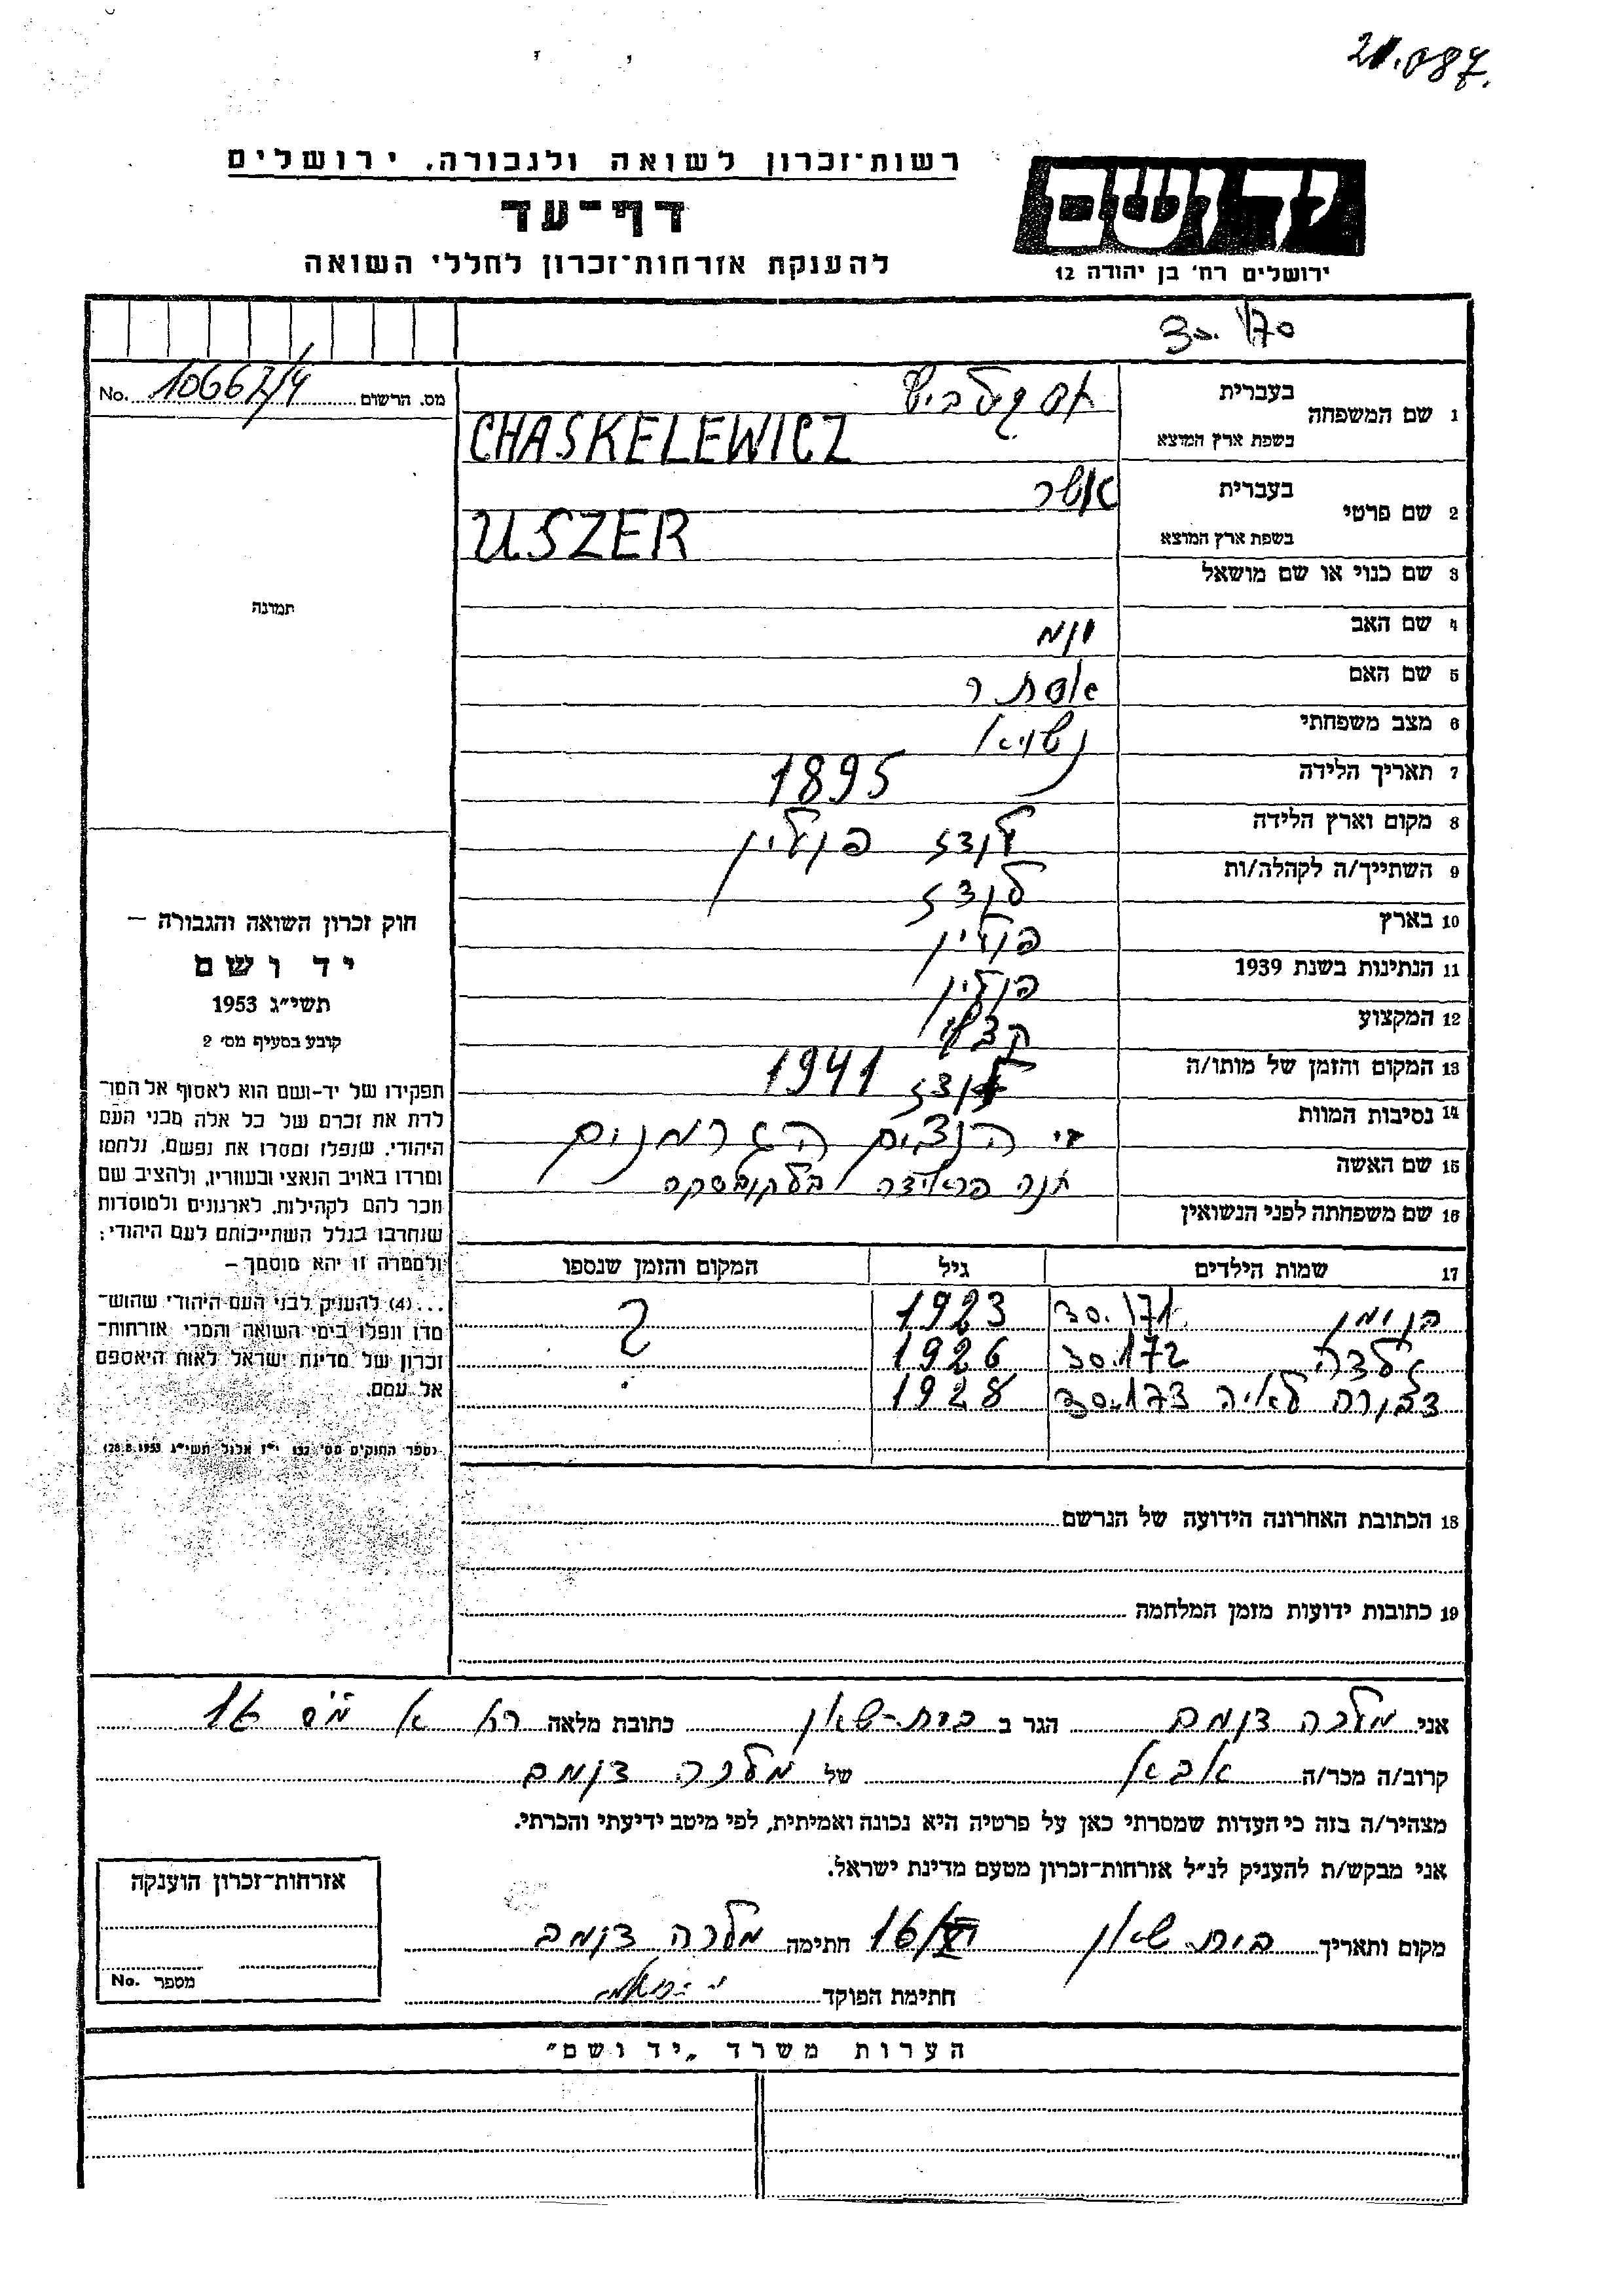 21.087.
רשות-זכרון לשואה ולגבורה, ירושלים
דף-עד
להענקת אזרחות-זכרון לחללי השואה
יד ושם
ירושלים רח' בן יהודה 12
מס. הרשום 10667/4 No.
1 שם המשפחה
בעברית
בשפת ארץ המוצא CHASKELEWICZ
2 שם פרטי
בעברית אשר
בשפת ארץ המוצא USZER
3 שם כנוי או שם מושאל
4 שם האב
5 שם האם אסתר
6 מצב משפחתי נשוי
7 תאריך הלידה 1895
8 מקום וארץ הלידה לודז פולין
9 השתייך/ה לקהלה/ות לודז
10 בארץ פולין
11 הנתינות בשנת 1939 פולין
12 המקצוע קצב
13 המקום והזמן של מותו/ה לודז 1941
14 נסיבות המוות הנצים הגרמנים
15 שם האשה חנה
16 שם משפחתה לפני הנשואין
17 שמות הילדים גיל המקום והזמן שנספו
30.171 1923 ?
30.172 1926
דבורה לאיה 30.173 1928
18 הכתובת האחרונה הידועה של הנרשם
19 כתובות ידועות מזמן המלחמה
תמונה
חוק זכרון השואה והגבורה –
יד ושם
תשי"ג 1953
קובע בסעיף מס' 2
תפקידו של יד-ושם הוא לאסוף אל המו־
לדת את זכרם של כל אלה מבני העם
היהודי, שנפלו ומסרו את נפשם, נלחמו
ומרדו באויב הנאצי ובעוזריו, ולהציב שם
וזכר להם לקהילות, לארגונים ולמוסדות
שנחרבו בגלל השתייכותם לעם היהודי:
ולמטרה זו יהא מוסמך –
...(4) להעניק לבני העם היהודי שהוש־
מדו ונפלו בימי השואה והמרי אזרחות־
זכרון של מדינת ישראל לאות היאספם
אל עמם.
(ספר החוקים מס' 132 י"ז אלול תשי"ג 28.8.1953)
אני מלכה הגר ב בית-שאן כתובת מלאה 16
קרוב/ה מכר/ה אבא של מלכה
מצהיר/ה בזה כי העדות שמסרתי כאן על פרטיה היא נכונה ואמיתית, לפי מיטב ידיעתי והכרתי.
אני מבקש/ת להעניק לנ"ל אזרחות-זכרון מטעם מדינת ישראל.
מקום ותאריך בית שאן חתימה מלכה
חתימת הפוקד
אזרחות-זכרון הוענקה
מספר No.
הערות משרד „יד ושם"